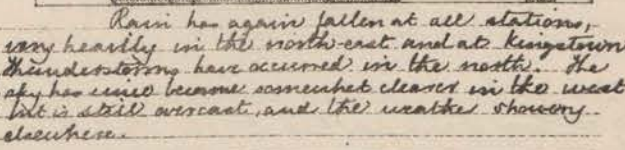 Rain has again fallen at all stations,
very heavily in the north-east and at Kingstown
Thunderstorms have occurred in the north. The
sky has since become somewhat clearer in the west
but is still overcast, and the weather showery
elsewhere.